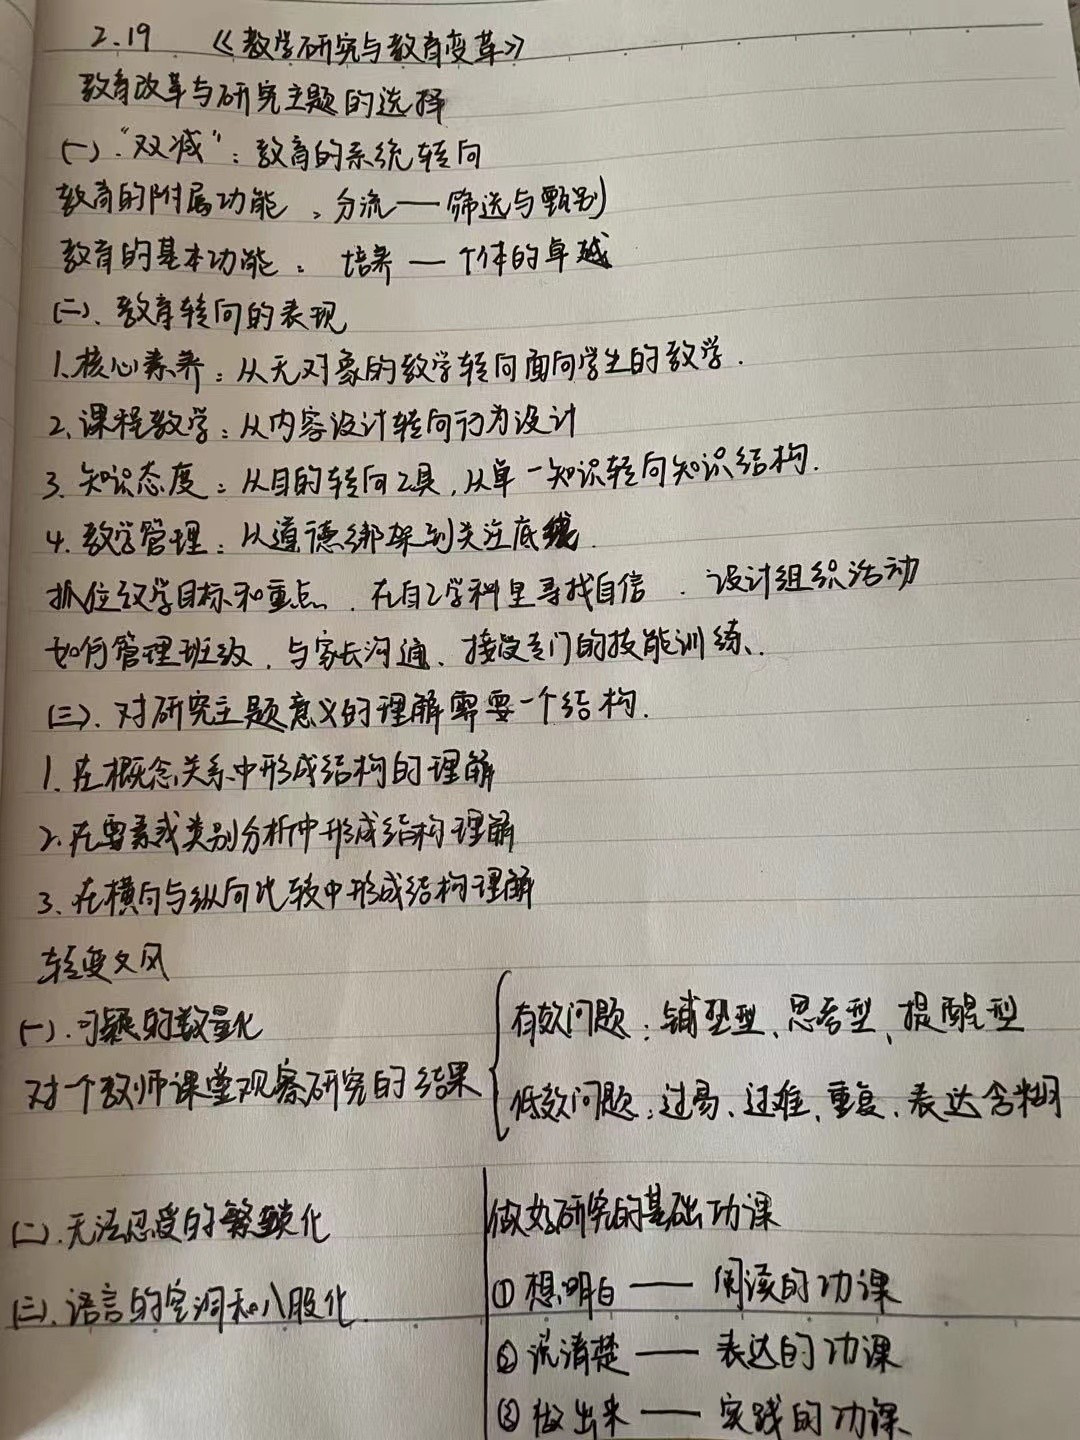 2.19 《教学研究与教育变革》
教育改革与研究主题的选择
(一)."双减"：教育的系统转向
教育的附属功能：分流——筛选与甄别
教育的基本功能：培养——个体的卓越
(二)、教育转向的表现
1.核心素养：从无对象的教学转向面向学生的教学.
2.课程教学：从内容设计转向行为设计
3.知识态度：从目的转向工具,从单一知识转向知识结构.
4.教学管理：从道德绑架到关注底线.
抓住教学目标和重点、在自己学科里寻找自信、设计组织活动
如何管理班级、与家长沟通、接受专门的技能训练.
(三).对研究主题意义的理解需要一个结构.
1.在概念关系中形成结构的理解
2.在要素或类别分析中形成结构理解
3.在横向与纵向比较中形成结构理解
转变文风
(一).可疑的数量化
对一个教师课堂观察研究的结果
有效问题：铺垫型、思考型、提醒型
低效问题：过易、过难、重复、表达含糊
(二).无法忍受的繁琐化
(三).语言的空洞和八股化.
做好研究的基础功课
①想明白——阅读的功课
②说清楚——表达的功课
③做出来——实践的功课